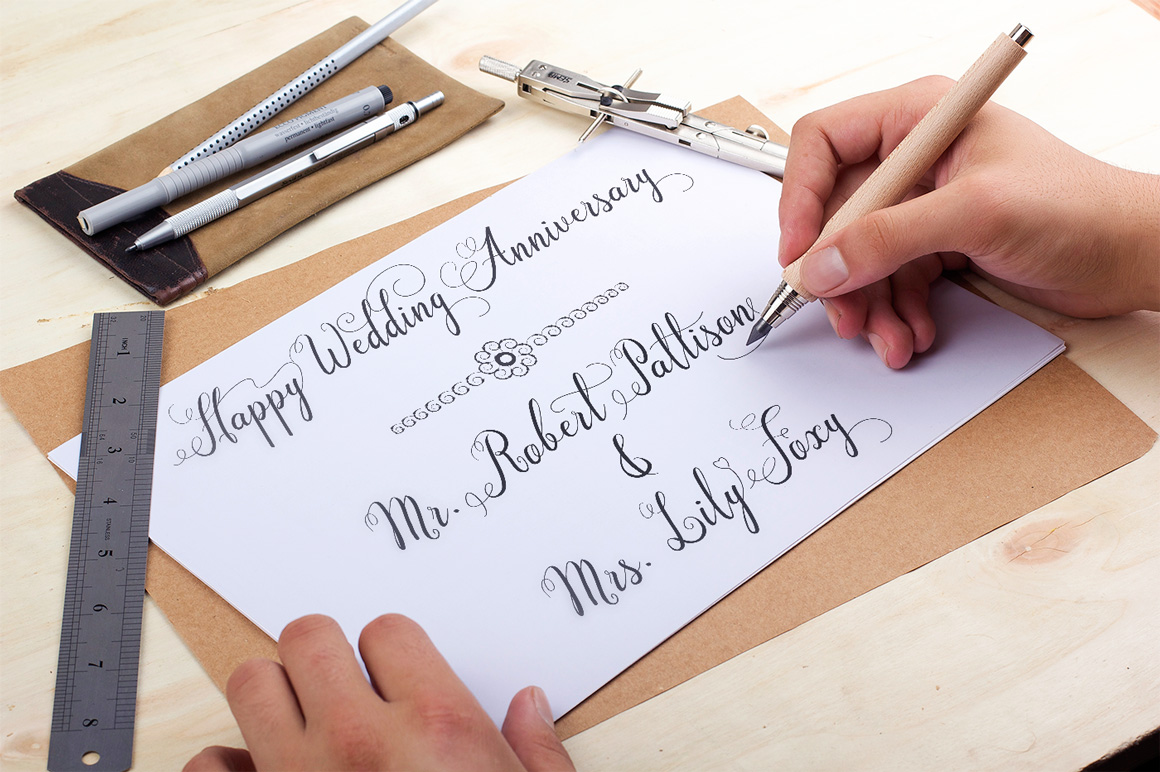 Happy Wedding Anniversary
Mr. Robert Pattison
&
Mrs. Lily Foxy
permanent • lightfast
INCH
1
2
3
4
STAINLESS
5
6
7
8